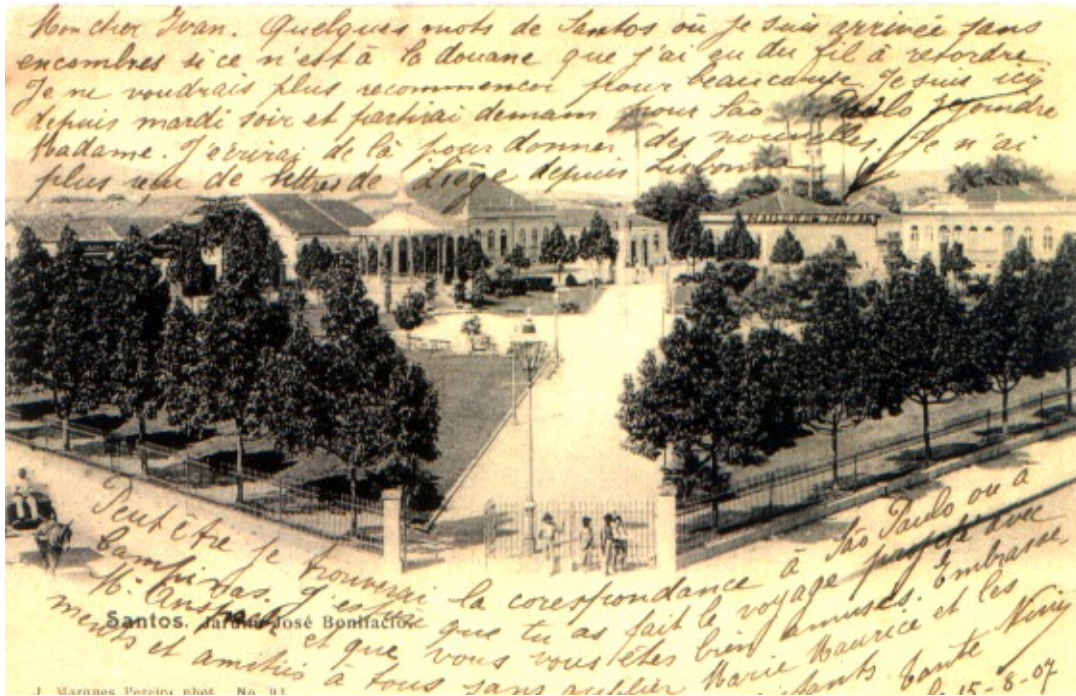 Mon cher Ivan. Quelques mots de Santos où je suis arrivée sans
encombres si ce n'est à la douane que j'ai eu du fil à retordre.
Je ne voudrais plus recommencer pour beaucoup. Je suis ici
depuis mardi soir et partirai demain pour São Paulo rejoindre
Madame. J'ecrirai de là pour donner des nouvelles. Je n'ai
plus reçu de lettres de Liège depuis Lisbonne
Peut être je trouverai la corespondance à São Paulo ou à
Campinas. J'espère que tu as fait le voyage projeté avec
Mr. et que vous vous êtes bien amusés. Embrasse
Marie Maurice et les
ments et amitiés à tous sans oublier tante Niny
15-8-07
Santos. Jardim José Bonifacio.
J. Marques Pereira phot. No. 93